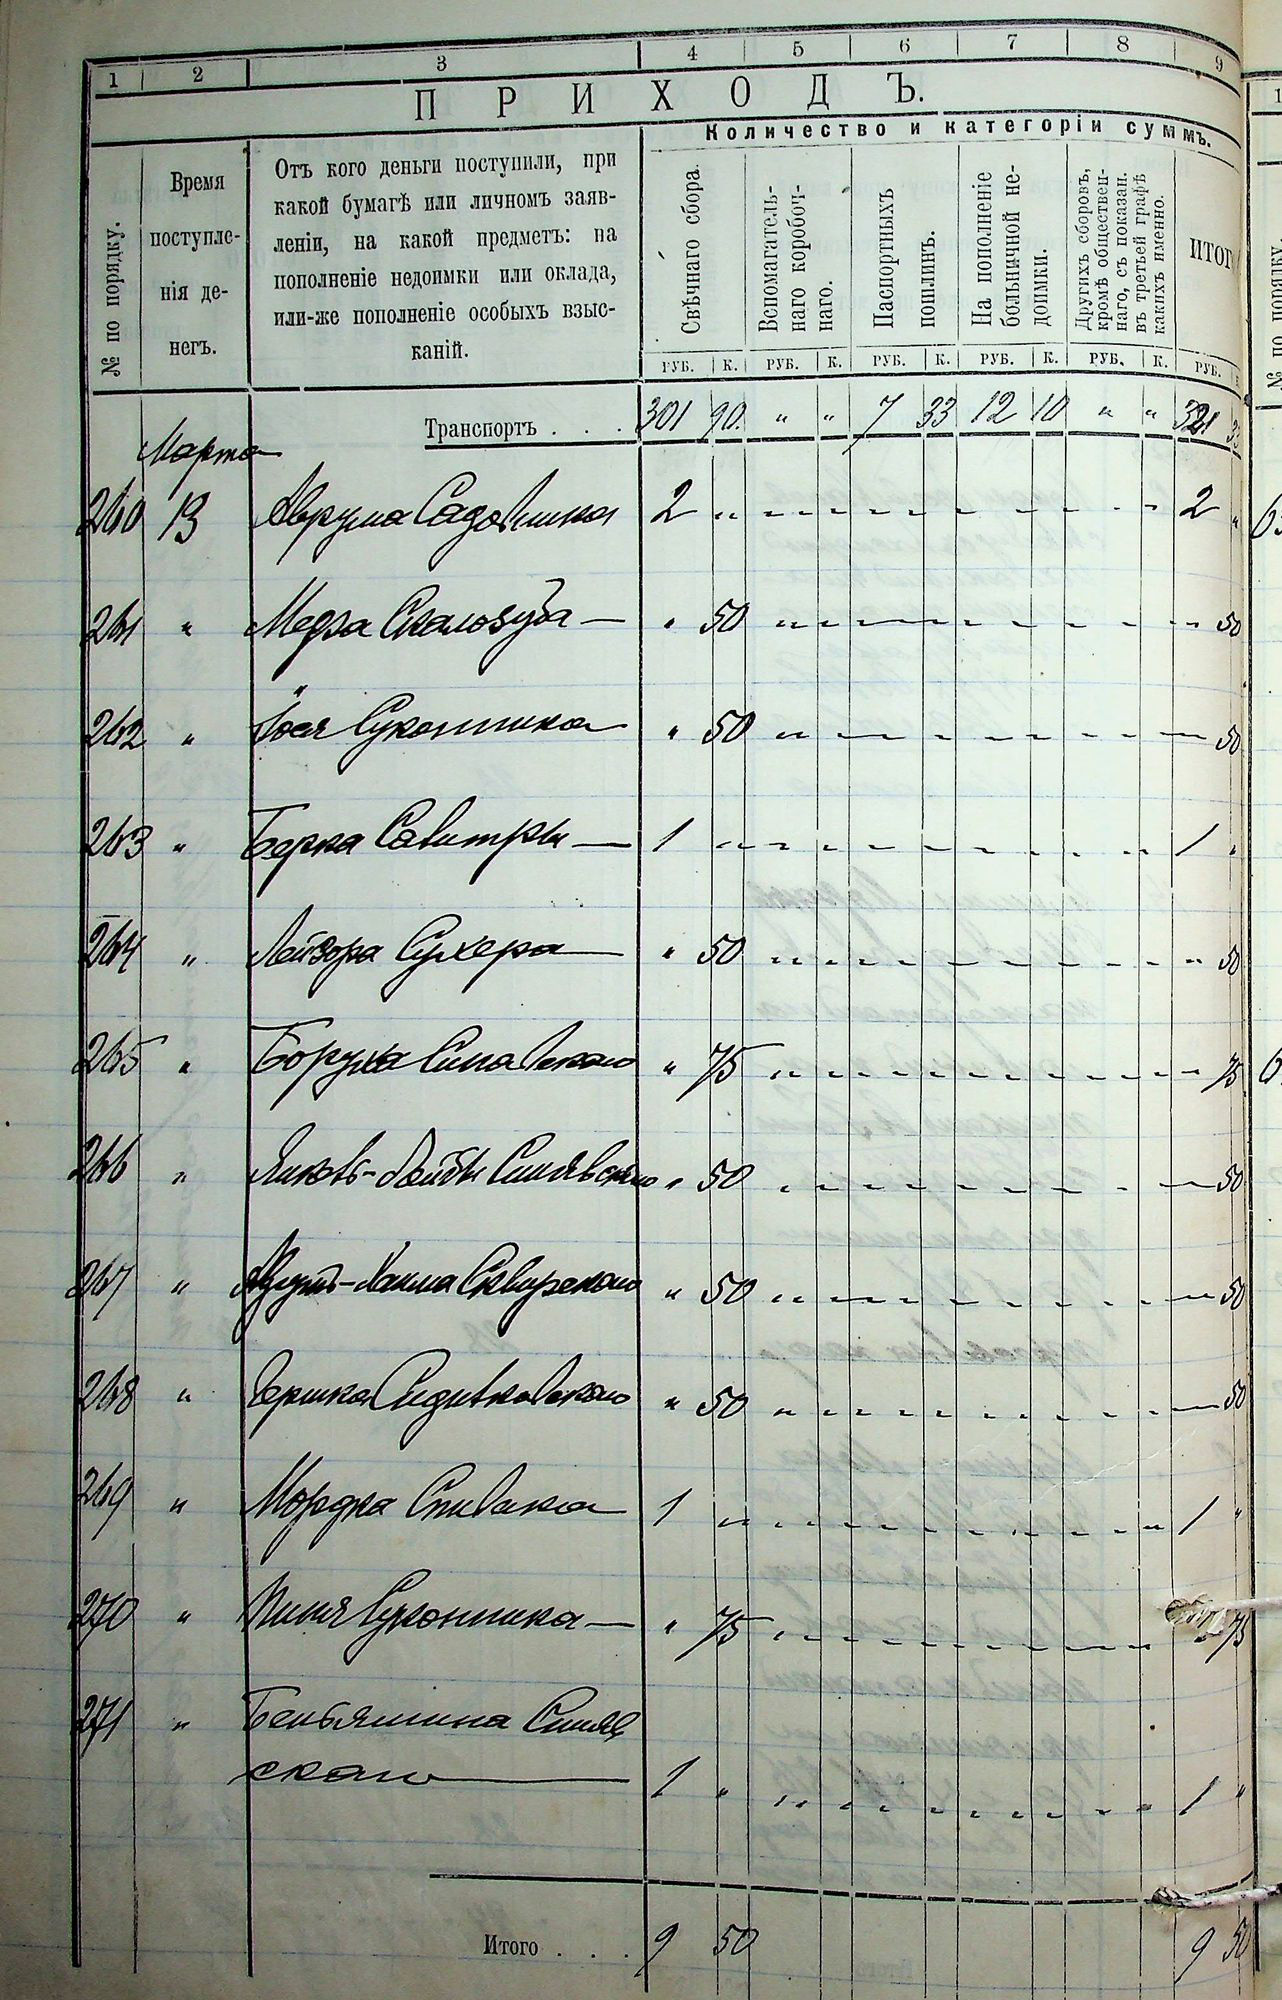 1 2 3 4 5 6 7 8 9
ПРИХОДЪ.
Количество и категоріи суммъ.
№ по порядку.
Время
поступле-
нія де-
негъ.
Отъ кого деньги поступили, при
какой бумагѣ или личномъ заяв-
леніи, на какой предметъ: на
пополненіе недоимки или оклада,
или-же пополненіе особыхъ взыс-
каній.
Свѣчнаго сбора.
Вспомагатель-
наго коробоч-
наго.
Паспортныхъ
пошлинъ.
На пополненіе
больничной не-
доимки.
Другихъ сборовъ,
кромѣ обществен-
наго, съ показан.
въ третьей графѣ
какихъ именно.
ИТОГО
РУБ. К. РУБ. К. РУБ. К. РУБ. К. РУБ. К. РУБ.
Транспортъ . . . 301 90 " " 7 33 12 10 " " 321 33
Марта
260 13 Аврума Садовника 2 " 2 "
261 " Медха Скалозуба — " 50 50
262 " Іося Суконника " 50 50
263 " Берка Савитры — 1 " 1 "
264 " Лейзора Сухера " 50 50
265 " Боруха Синявскаго " 75 75
266 " Янкель-Лейбы Синявскаго " 50 50
267 " Хаима Сквирскаго " 50 50
268 " Гершка Сидлковскаго " 50 50
269 " Мордка Спивака 1 " 1 "
270 " Пиня Суконника — " 75 75
271 " Беньямина Синяв
скаго — 1 " 1 "
Итого . . . 9 50 9 50